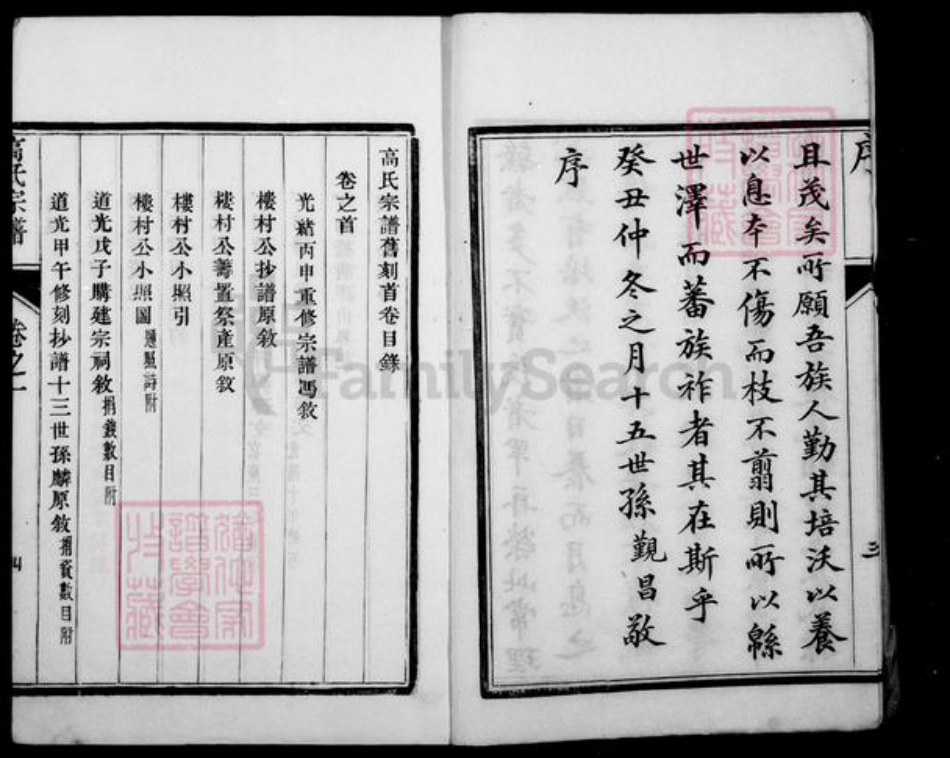 序
且茂矣所願吾族人勤其培沃以養
以息本不傷而枝不翦則所以緜
世澤而蕃族祚者其在斯乎
癸丑仲冬之月十五世孫觀昌敬
序
三
高氏宗譜舊刻首卷目錄
卷之首
光緒丙申重修宗譜馮敘
樓村公抄譜原敘
樓村公籌置祭產原敘
樓村公小照引
樓村公小照圖 題照詩附
道光戊子購建宗祠敘 捐錢數目附
道光甲午修刻抄譜十三世孫麟原敘 捐資數目附
高氏宗譜 卷之一 四
FamilySearch
譜學會
收藏